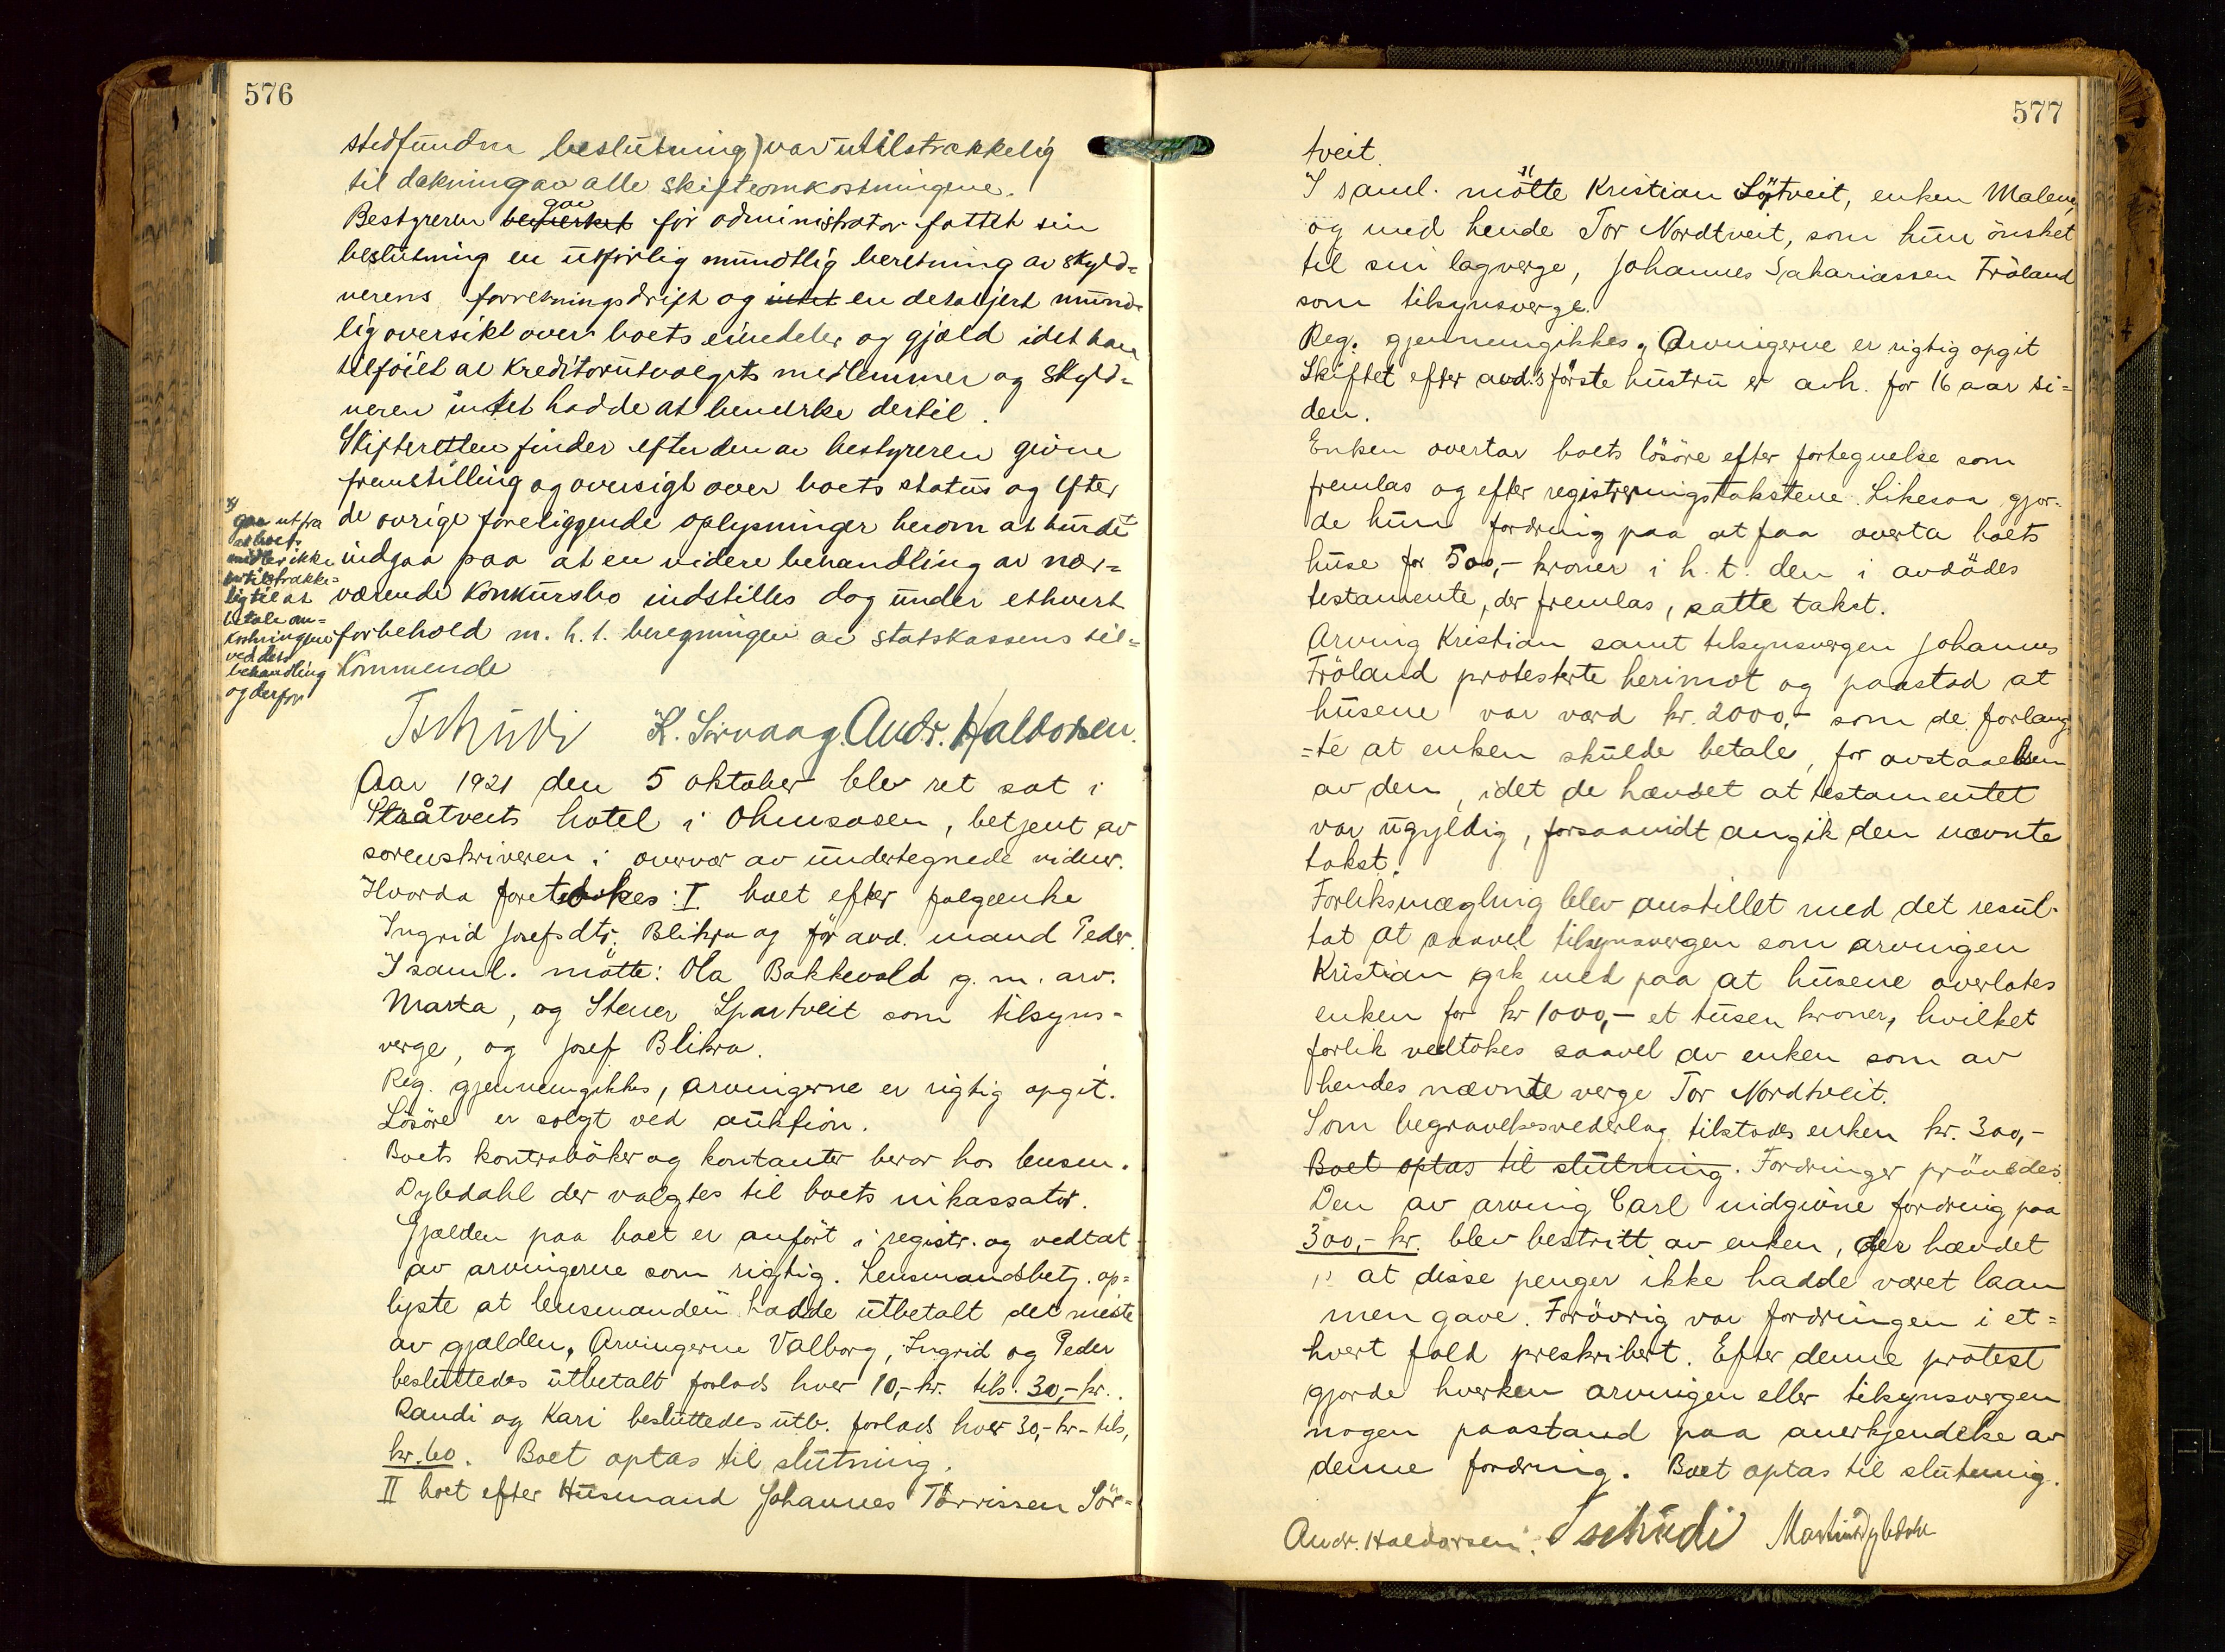 576
stedfundne beslutning) var utilstrækkelig
til dækning av alle skifteomkostningene.
Bestyreren bemerket gav før administrator fattet sin
beslutning en utførlig mundtlig beretning av skyld=
nerens forretningsdrift og intet en detaljert mund=
lig oversikt over boets eiendeler og gjæld idet han
tilføiet at kreditorutvalgets medlemmer og skyld=
neren intet hadde at bemerke dertil.
Skifteretten finder efter den av bestyreren givne
fremstilling og oversigt over boets status og efter
de øvrige foreliggende oplysninger herom at burde
indgaa paa at en videre behandling av nær=
værende konkursbo indstilles dog under ethvert
forbehold m. h. t. beregningen av statskassens til=
kommende
gaa ut fra
at boets
midler ikke
er tilstrække=
lig til at
betale om=
kostningene
ved dets
behandling
og derfor
Tschudi K. Sirvaag. Andr. Haldorsen.
Aar 1921 den 5 oktober blev ret sat i
Straatveits hotel i Ølensosen, betjent av
sorenskriveren i overvær av undertegnede vidner.
Hvorda foretokes: I boet efter folgeenke
Ingrid Josefsdtr. Blikra og før avd. mand Peder.
I saml. mötte: Ola Bakkevold g. m. arv.
Marta, og Stener Spartveit som tilsyns-
verge, og Josef Blikra.
Reg. gjennemgikkes, arvingerne er rigtig opgit.
Lösöre er solgt ved auktion.
Boets kontraböker og kontanter beror hos lensm.
Dybdahl der valgtes til boets inkassator.
Gjælden paa boet er anført i registr. og vedtat
av arvingerne som rigtig. Lensmandsbetj. op=
lyste at lensmanden hadde utbetalt det meste
av gjælden. Arvingerne Valborg, Ingrid og Peder
besluttedes utbetalt forlods hver 10,- kr. tils. 30,- kr.
Randi og Kari besluttedes utb. forlods hver 30,- kr - tils,
kr. 60. Boet optas til slutning.
II boet efter Husmand Johannes Törrissen Sör-
577
tveit.
I saml. mötte Kristian Sörtveit, enken Malene,
og med hende Tor Nordtveit, som hun önsket
til sin lagverge, Johannes Sakariassen Fröland
som tilsynsverge.
Reg. gjennemgikkes. Arvingerne er rigtig opgit
Skiftet efter avd.s förste hustru er avh. for 16 aar si=
den.
Enken overtar boets lösöre efter fortegnelse som
fremlas og efter registreringstakstene. Likesaa gjor-
de hun fordring paa at faa overta boets
huse for 500,- kroner i h. t. den i avdödes
testamente, der fremlas, satte takst.
Arving Kristian samt tilsynsvergen Johannes
Fröland protesterte herimot og paastod at
husene var værd kr. 2000,- som de forlang
=te at enken skulde betale, for avstaaelsen
av dem, idet de hævdet at testamentet
var ugyldig, forsaavidt angik den nævnte
takst.
Forliksmægling blev anstillet med det resul-
tat at saavel tilsynsvergen som arvingen
Kristian gik med paa at husene overlates
enken for kr 1000,- et tusen kroner, hvilket
forlik vedtokes saavel av enken som av
hendes nævnte verge Tor Nordtveit.
Som begravelsesvederlag tilstodes enken kr. 300,-
Boet optas til slutning. Fordringer prövedes.
Den av arving Carl indgivne fordring paa
300,- kr. blev bestritt av enken, der hævdet
at disse penger ikke hadde været laan
men gave. Forövrig var fordringen i et=
hvert fald preskribert. Efter denne protest
gjorde hverken arvingen eller tilsynsvergen
nogen paastand paa anerkjendelse av
denne fordring. Boet optas til slutning.
Andr. Haldorsen. Tschudi Martin Dybdahl